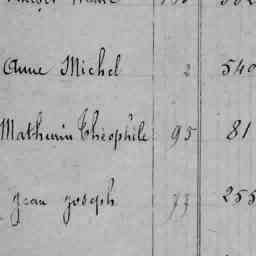 Anne Michel 2 540
Mathurin Théophile 95 81
Jean Joseph 73 255